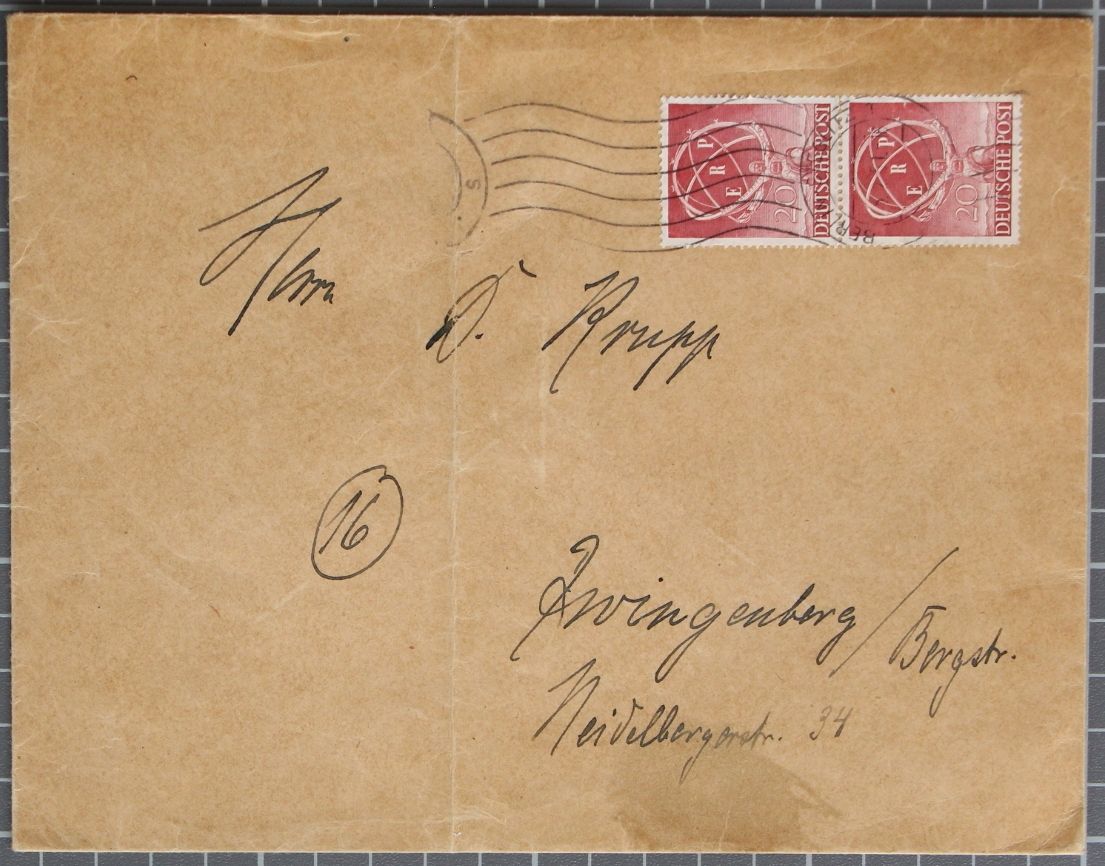 ERP
20
DEUTSCHE POST
ERP
20
DEUTSCHE POST
Herrn
D. Krupp
16
Zwingenberg / Bergstr.
Heidelbergerstr. 34